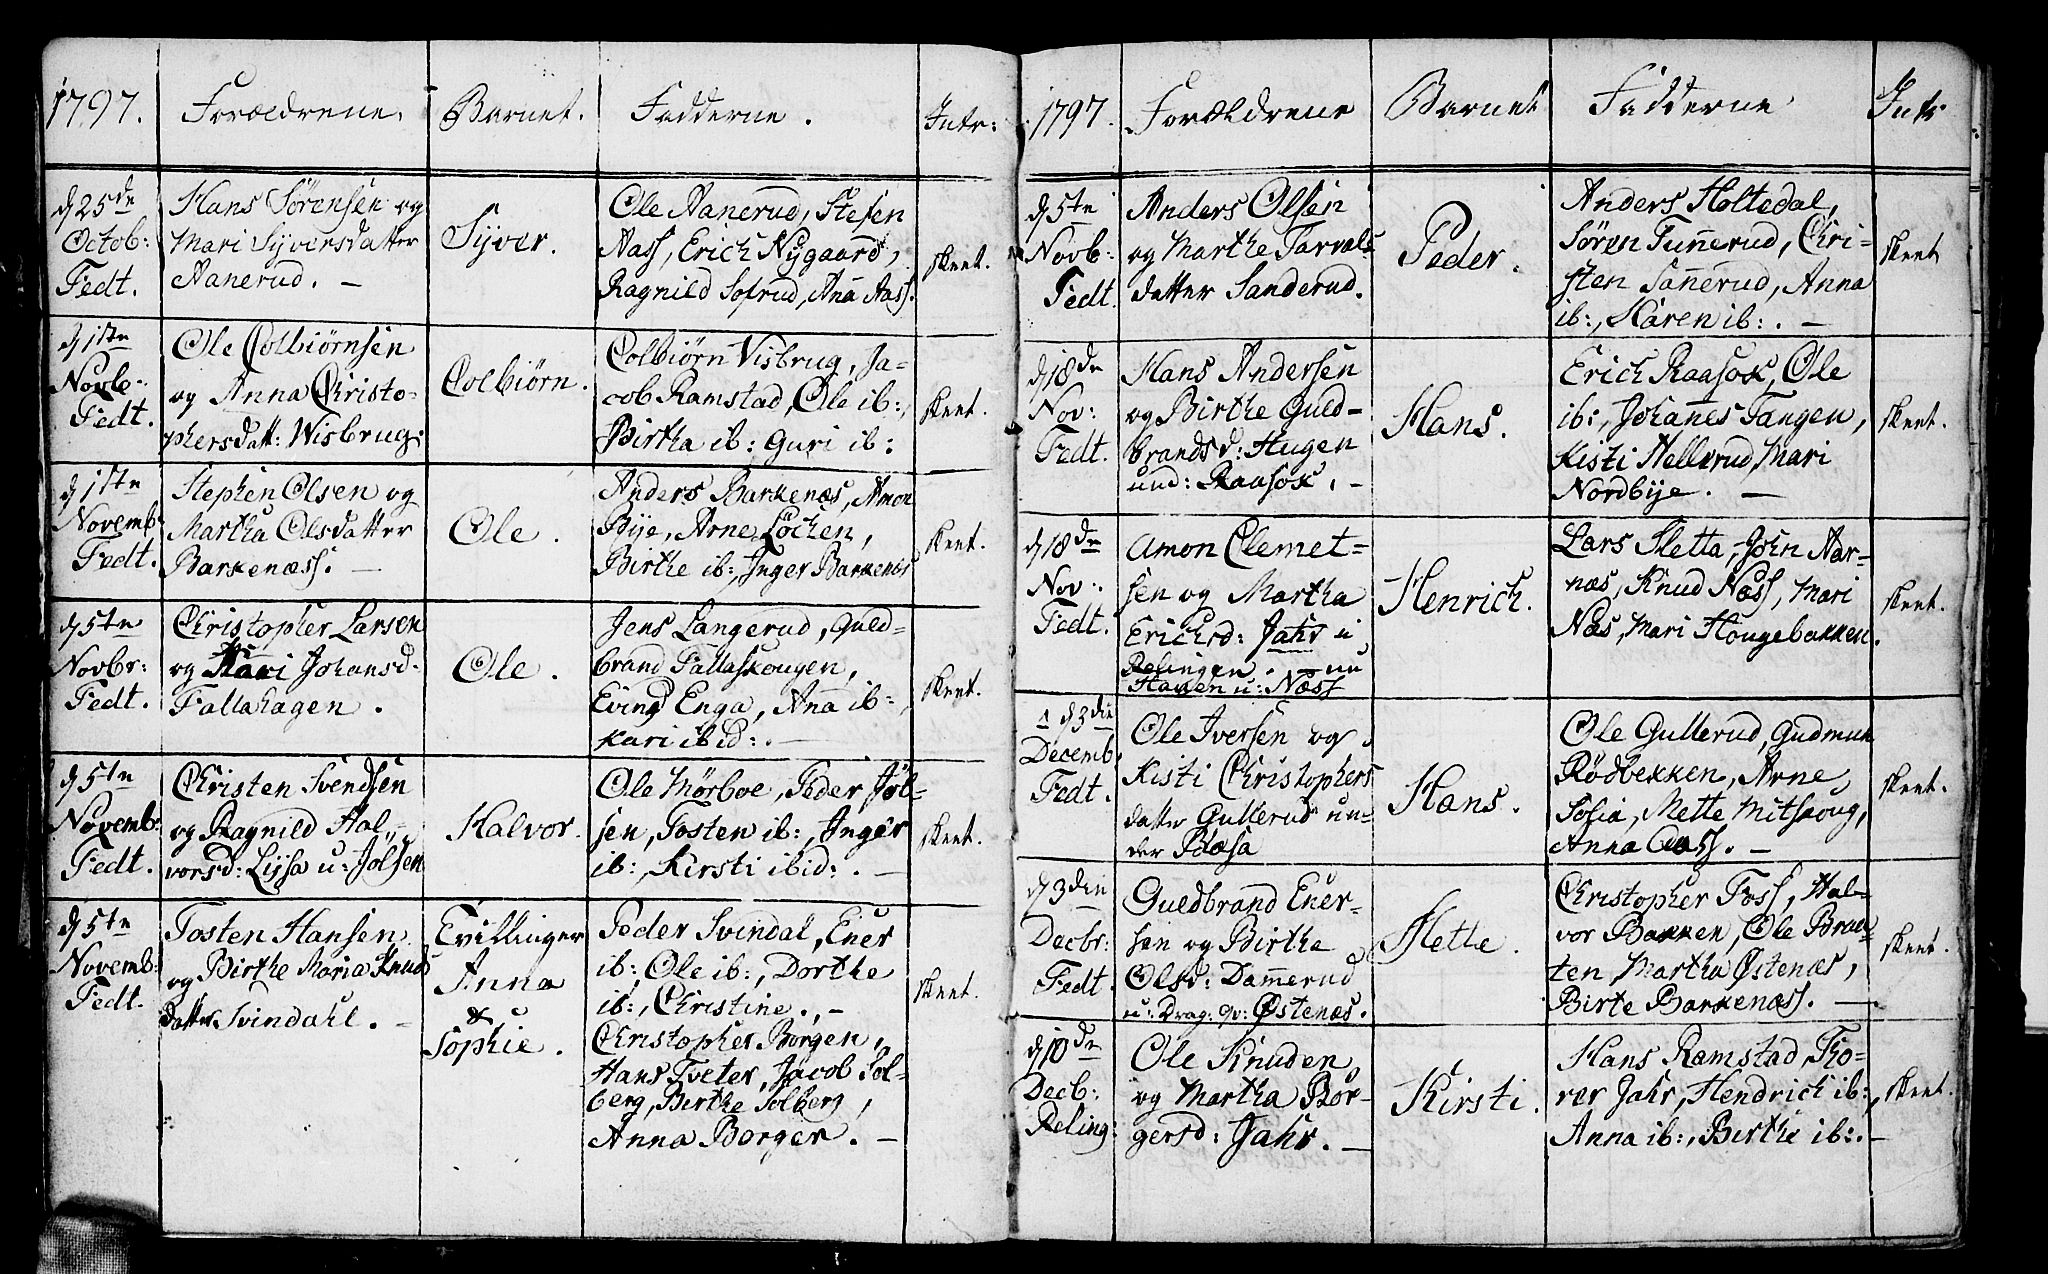 1797. Forældrene. Barnet. Fadderne. Intr:
d 25de
Octob:
Fedt.
Hans Sörensen og
Mari Syversdatter
Aanerud. —
Syver.
Ole Aanerud, Stefen
Aass, Erich Nygaard,
Ragnild Sofrud, Aña Aass.
skeet.
d 1ste
Novb:
Fedt.
Ole Colbiörnsen
og Anna Christo-
phersdatt: Wisbrug.
Colbiörn.
Colbiörn Visbrug, Ja-
cob Ramstad, Ole ib:,
Birtha ib: Guri ib:
skeet.
d 1ste
Novemb:
Fedt.
Stephen Olsen og
Martha Olsdatter
Barkenæss. —
Ole.
Anders Barkenæs, Amon
Bye, Arne Löchen,
Birthe ib:, Inger Barkenæs
skeet.
d 5te
Novbr:
Fedt.
Christopher Larsen
og Kari Johansd.
Fallahagen.
Ole.
Jens Langerud, Guld-
brand Fallaskougen,
Evind Enga, Aña ib:,
Kari ibid: . —
skeet.
d 5te
Novemb:
Fedt.
Christen Svendsen
og Ragnild Hal-
vorsd: Lissa u: Jölsen
Halvor.
Ole Mörboe, Peder Jöl-
sen, Tosten ib:, Inger
ib:, Kirsti ibid: . —
skeet.
d 5te
Novemb:
Fedt.
Tosten Hansen
og Birthe Maria Knuds
datter Svindahl. —
Tvillinger
Anna
&
Sophie.
Peder Svindal, Ener
ib:, Ole ib:, Dorthe
ib:, Christine. , —
Christopher Borgen,
Hans Tveter, Jacob Sol-
berg, Birthe Solberg,
Anna Borgen. —
skeet.
1797. Forældrene Barnet Fadderne Intr
d 5te
Novb:
Fedt.
Anders Olsen
og Marthe Tarvals
datter Sanderud.
Peder.
Anders Holtedal,
Sören Tuñerud, Chri-
sten Sañerud, Anna
ib:, Karen ib: . —
skeet
d 18de
Nov:
Fedt.
Hans Andersen
og Birthe Guld-
brandsd: Haugen
und: Raasok. —
Hans.
Erich Raasok, Ole
ib:, Johañes Tangen,
Kisti Hellerud, Mari
Nordbye. —
skeet.
d 18de
Nov:
Fedt.
Amon Clemet-
sen og Martha
Erichsd: Jahr i
Relingen. — nu
Hagen u: Næss
Henrich.
Lars Sletta, John Aar-
næs, Knud Næss, Mari
Næs, Mari Hougebakken.
skeet.
d 3die
Decemb,
Fedt.
Ole Iversen og
Kisti Christophers
datter Gullerud un-
der Basa
Hans.
Ole Gullerud, Gudmun
Rödbekken, Arne
Sosia, Mette Mitskoug,
Anna Aass. —
skeet.
d 3die
Decbr:
Fedt.
Guldbrand Ener-
sen og Birthe
Olsd: Dam̃erud
u: Drag: qv: Østenæs.
Mette.
Christopher Foss, Hal-
vor Bakken, Ole Braa-
ten Martha Østenæs,
Birte Barkenæss. —
skeet.
d 10de
Decb:
Reling:
Ole Knuden,
og Martha Bör-
gersd: Jahr. —
Kirsti.
Hans Ramstad, Tho-
rer Jahr, Hendrich ib:,
Anna ib:, Birthe ib: . —
skeet.